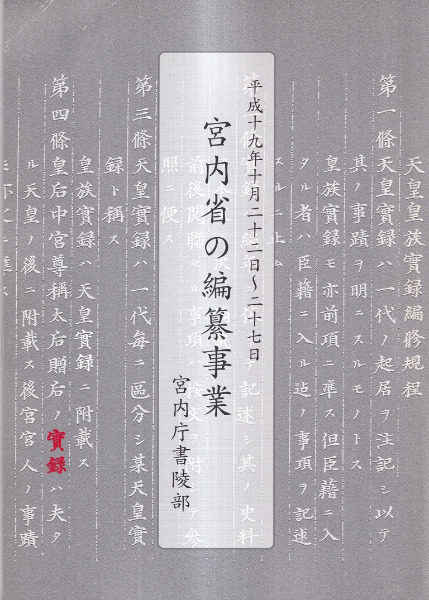 平成十九年十月二十二日～二十七日
宮内省の編纂事業
宮内庁書陵部
天皇皇族實録編修規程
第一條天皇實録ハ一代ノ起居ヲ注記シ以テ
其ノ事蹟ヲ明ニスルモノトス
皇族實録モ亦前項ニ準ス但臣籍ニ入
タル者ハ臣籍ニ入ル迠ノ事項ヲ記述
スルニ止ム
記述シ其ノ史料
前後関聯セル事項 附 參
照ニ便ス
第三條天皇實録ハ一代毎ニ區分シ某天皇實
録ト稱ス
皇族實録ハ天皇實録ニ附載ス
第四條皇后中宮尊稱太后贈后ノ實録ハ夫タ
ル天皇ノ後ニ附載ス後宮官人ノ事蹟